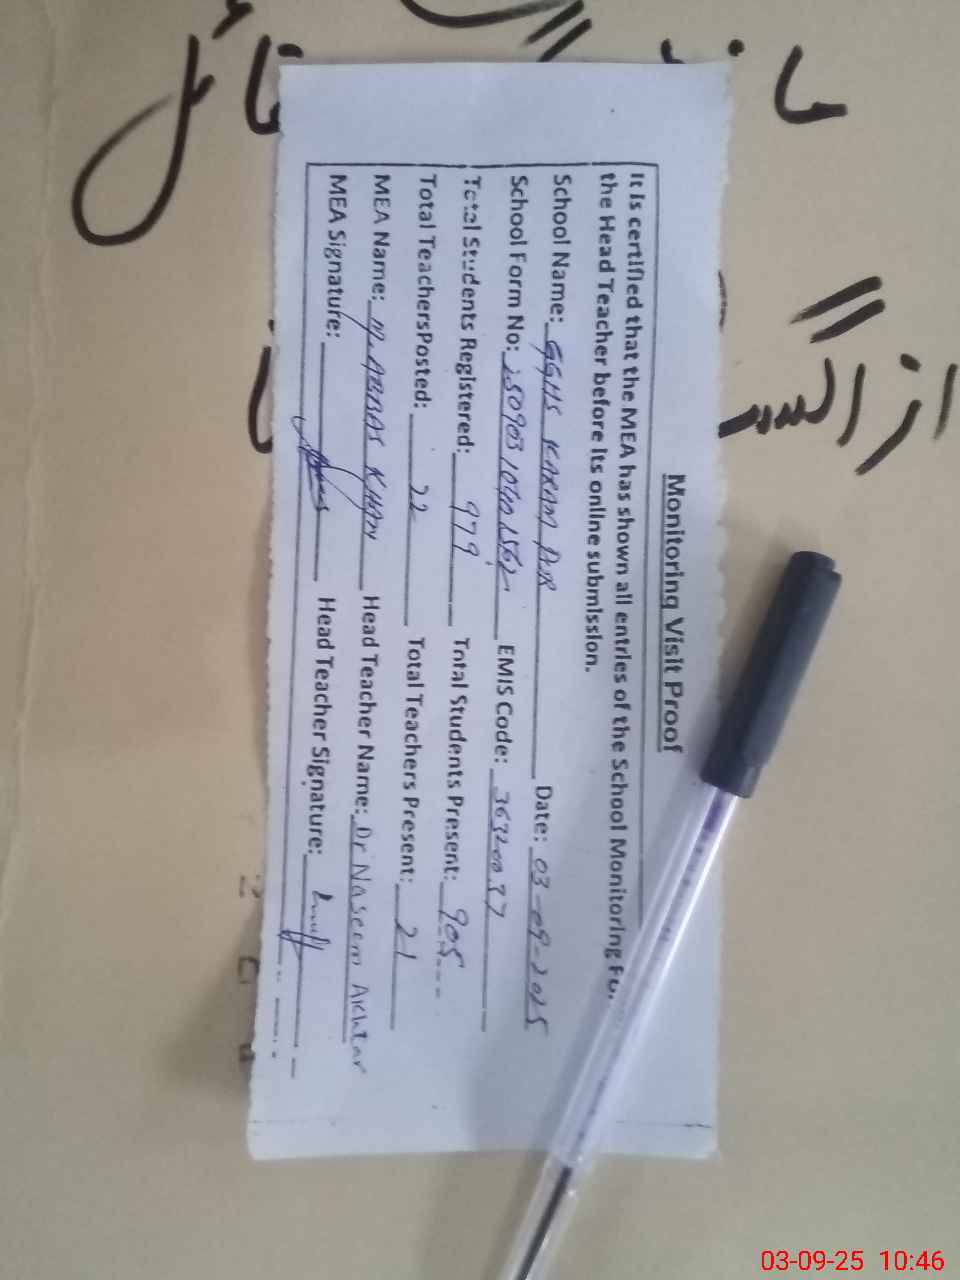 Monitoring Visit Proof
It is certified that the MEA has shown all entries of the School Monitoring Fo
the Head Teacher before its online submission.
School Name: GGHS KARAM PUR Date: 03-09-2025
School Form No: EMIS Code: 36320037
Total Students Registered: 979 Total Students Present: 905
Total TeachersPosted: 22 Total Teachers Present: 21
MEA Name: M. ABBAS KHAN Head Teacher Name: Dr Naseem Akhtar
MEA Signature: Head Teacher Signature:
03-09-25 10:46